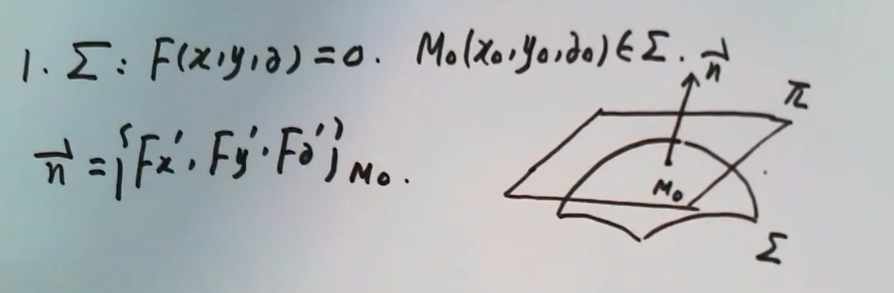 1. Σ: F(x,y,z)=0. M₀(x₀,y₀,z₀)∈Σ.
n⃗ = {Fx', Fy', Fz'}M₀.
n⃗
π
M₀
Σ